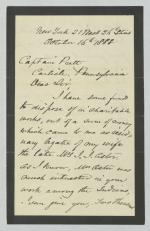 New York 21 West 26th Street
October 16th 1888
Captain Pratt
Carlisle, Pennsylvania
Dear Sir:
I have some fund
to dispose of in charitable
works, out of a sum of money
which came to me as
legatee of my wife
the late Mrs. J. J. Astor.
As I know, Mrs Astor was
much interested in your
work among the Indians,
I can give you, Two Thousand